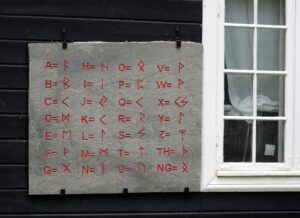 A=ᚨ H=ᚺ O=ᛟ V=ᚹ
B=ᛒ I=ᛁ P=ᛈ W=ᚹ
C=ᚲ J=ᛃ Q=ᚲ X=ᚲᛊ
D=ᛞ K=ᚲ R=ᚱ Y=ᛃ
E=ᛖ L=ᛚ S=ᛊ Z=ᛉ
F=ᚠ M=ᛗ T=ᛏ TH=ᚦ
G= N=ᚾ U=ᚢ NG=